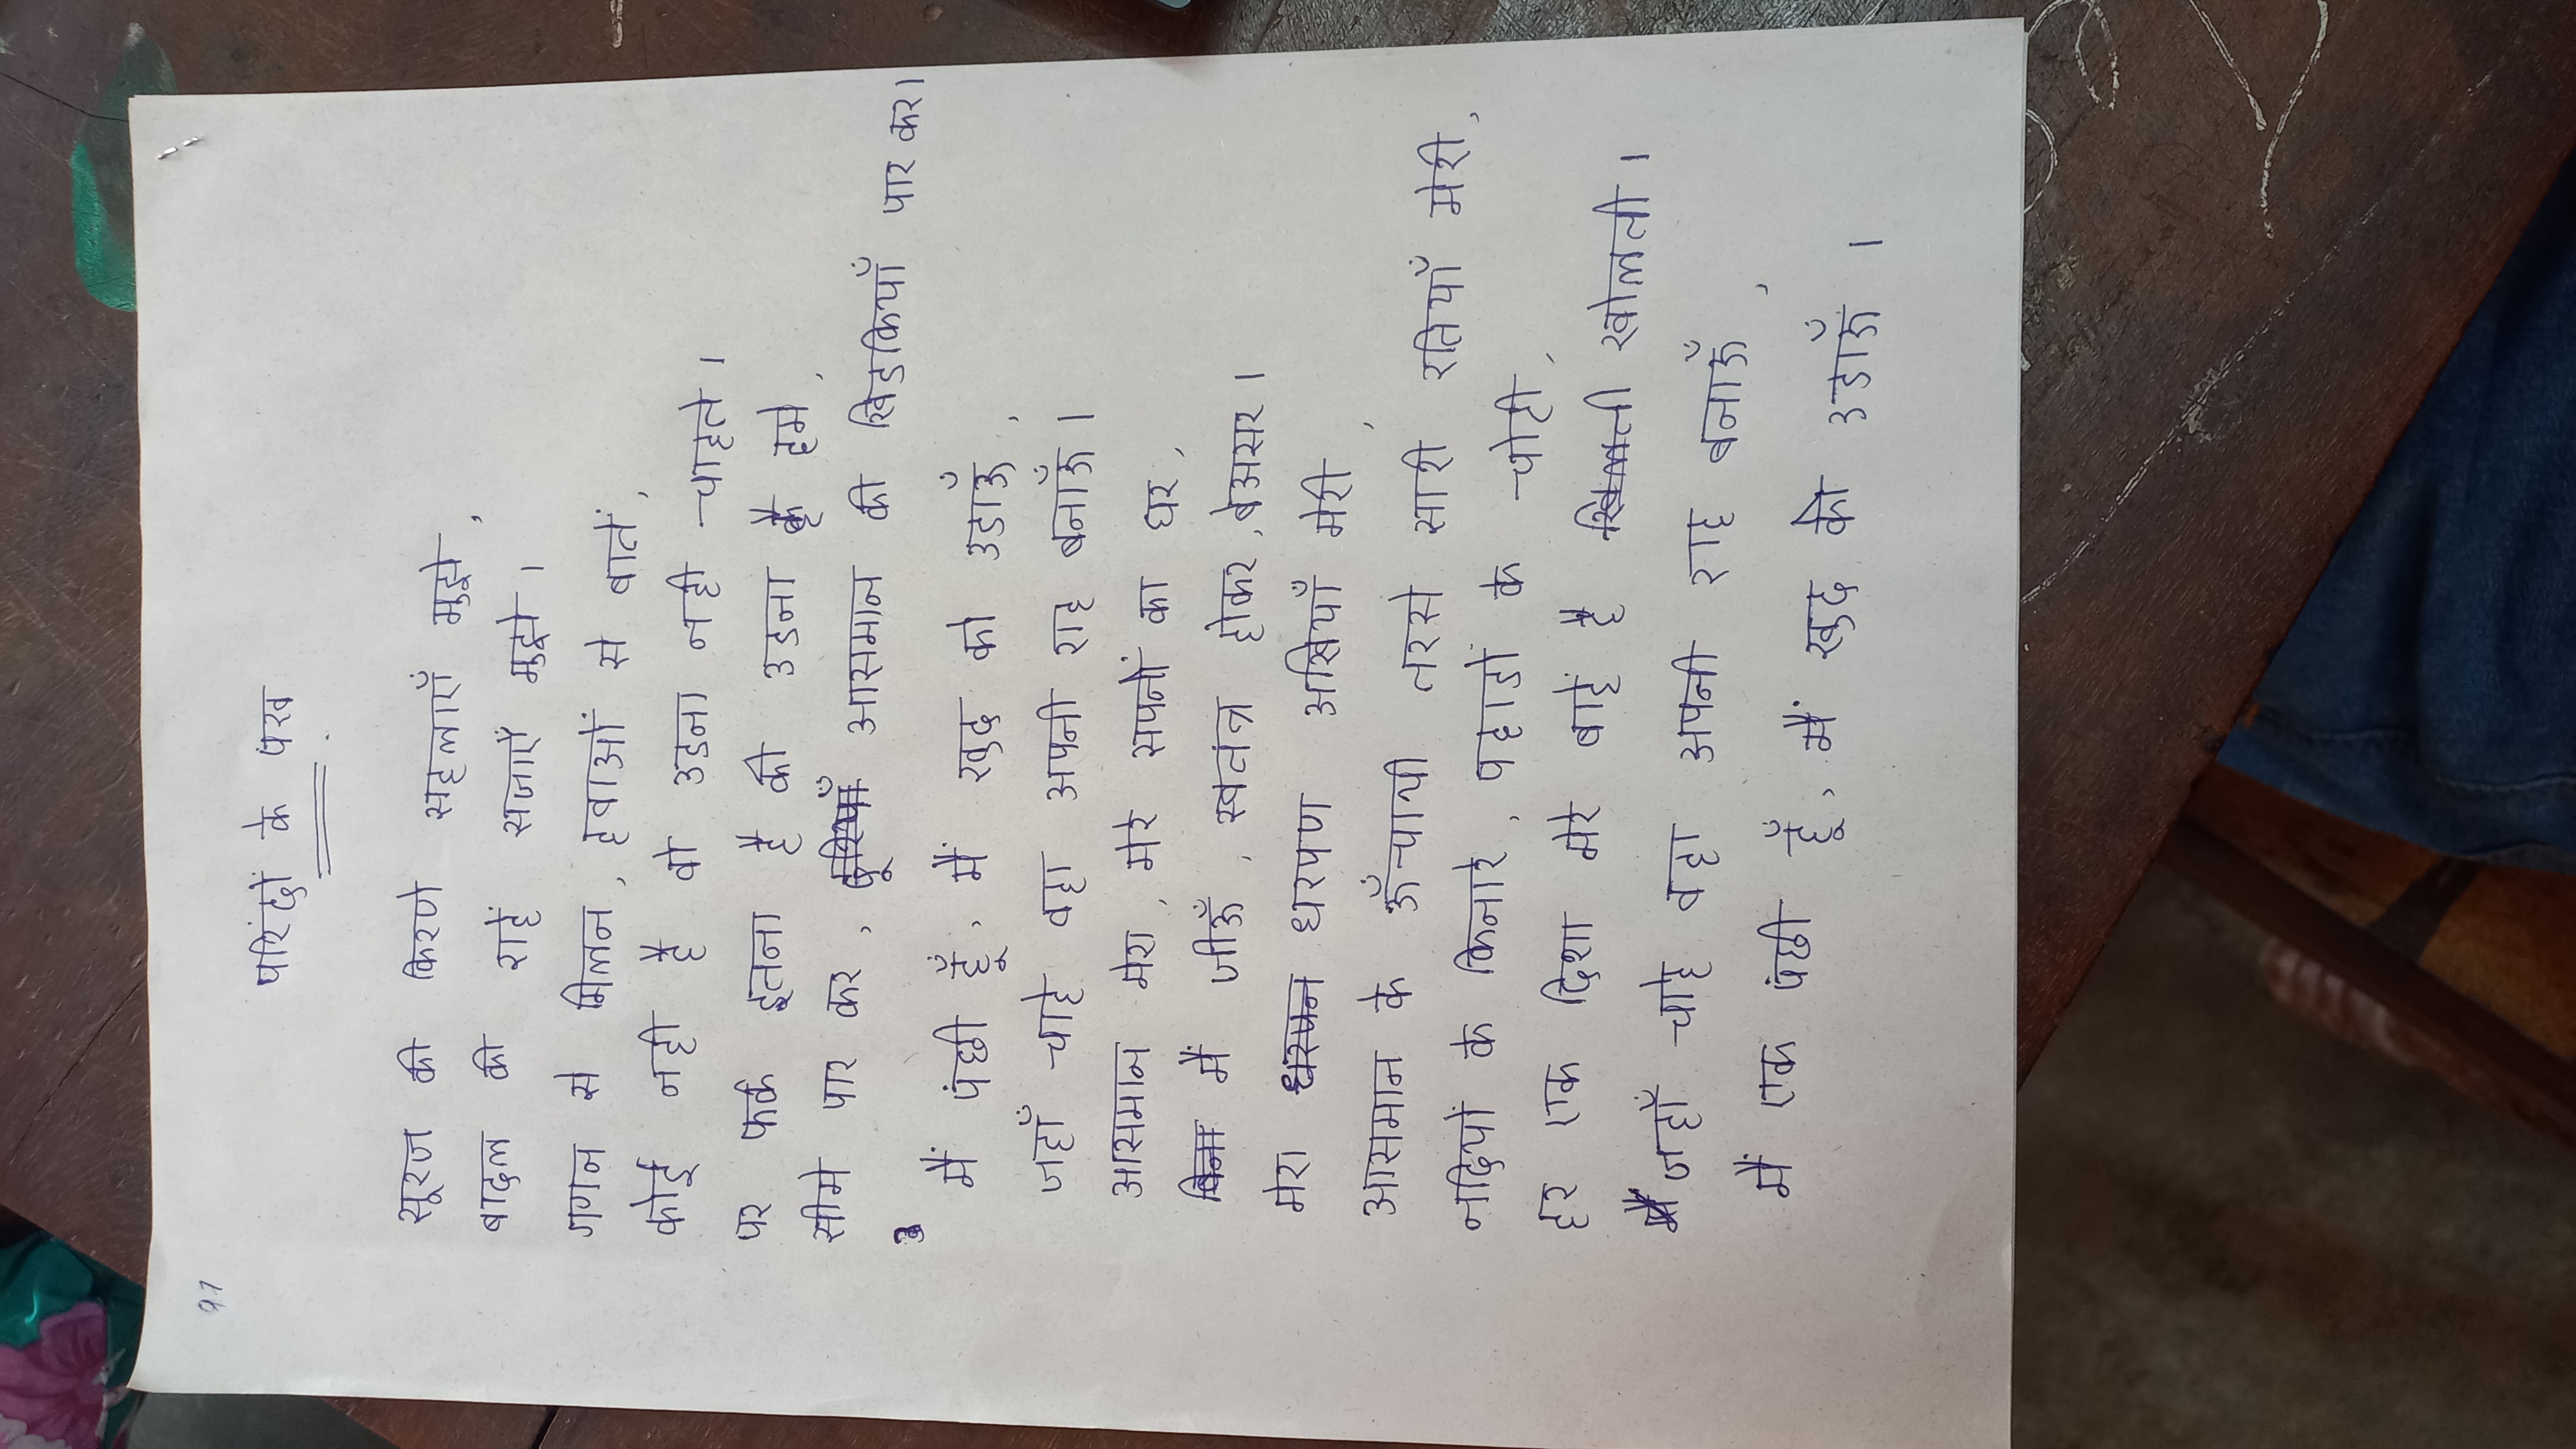 91
परिंदों के पंख
सूरज की किरणे सहलाएँ मुझे,
बादल की राहें सजाएँ मुझे।
गगन से मिलन, हवाओं से बातें,
कोई नही है वो उडना नही चाहते।
पर फर्क इतना है की उडना है हमे,
सीमे पार कर, आसमान की खिडकियाँ पार कर।
मैं पंछी हूँ, मैं खुद को उडाऊँ,
जहाँ चाहे वहा अपनी राह बनाऊँ।
आसमान मेरा, मेरे सपनों का घर,
मैं जीऊँ, स्वतंत्र होकर, बेअसर।
मेरा धरपण अखियाँ मेरी,
आसमान के ऊँचायी तरसे सारी रतियाँ मेरी,
नदियों के किनारे, पहाडों के चोटी,
हर एक दिशा मेरे बाहें है खोलती।
जहाँ चाहे वहा अपनी राह बनाऊँ,
मैं एक पंछी हूँ, मैं खुद को उडाऊँ।